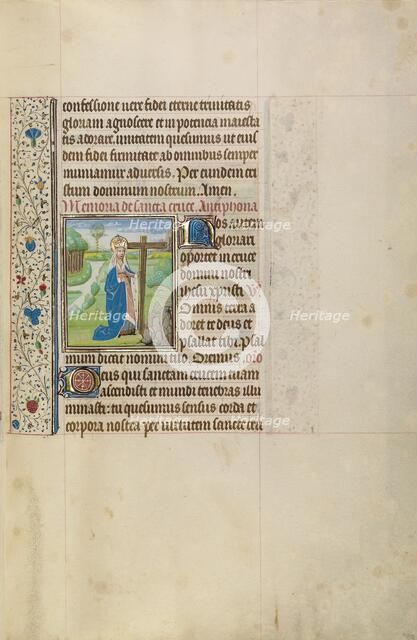 confessione uere fidei eterne trinitatis
gloriam agnoscere et in potencia maiesta
tis adorare unitatem quesumus ut eius
dem fidei firmitate ab omnibus semper
muniamur aduersis. Per eundem cri
stum dominum nostrum. Amen.
Memoria de sancta cruce. Antiphona
Nos autem
gloriari
oportet in cruce
domini nostri
ihesu xpristi
Omnis terra a
doret te deus et
psallat tibi. Psal
mum dicat nomini tuo. Oremus. oro
Deus qui sanctam crucem tuam
ascendisti et mundi tenebras illu
minasti: tu quesumus sensus corda et
corpora nostra per uirtutem sancte cru
Heritage Images
Heritage Images
Heritage Images
Heritage Images
Heritage Images